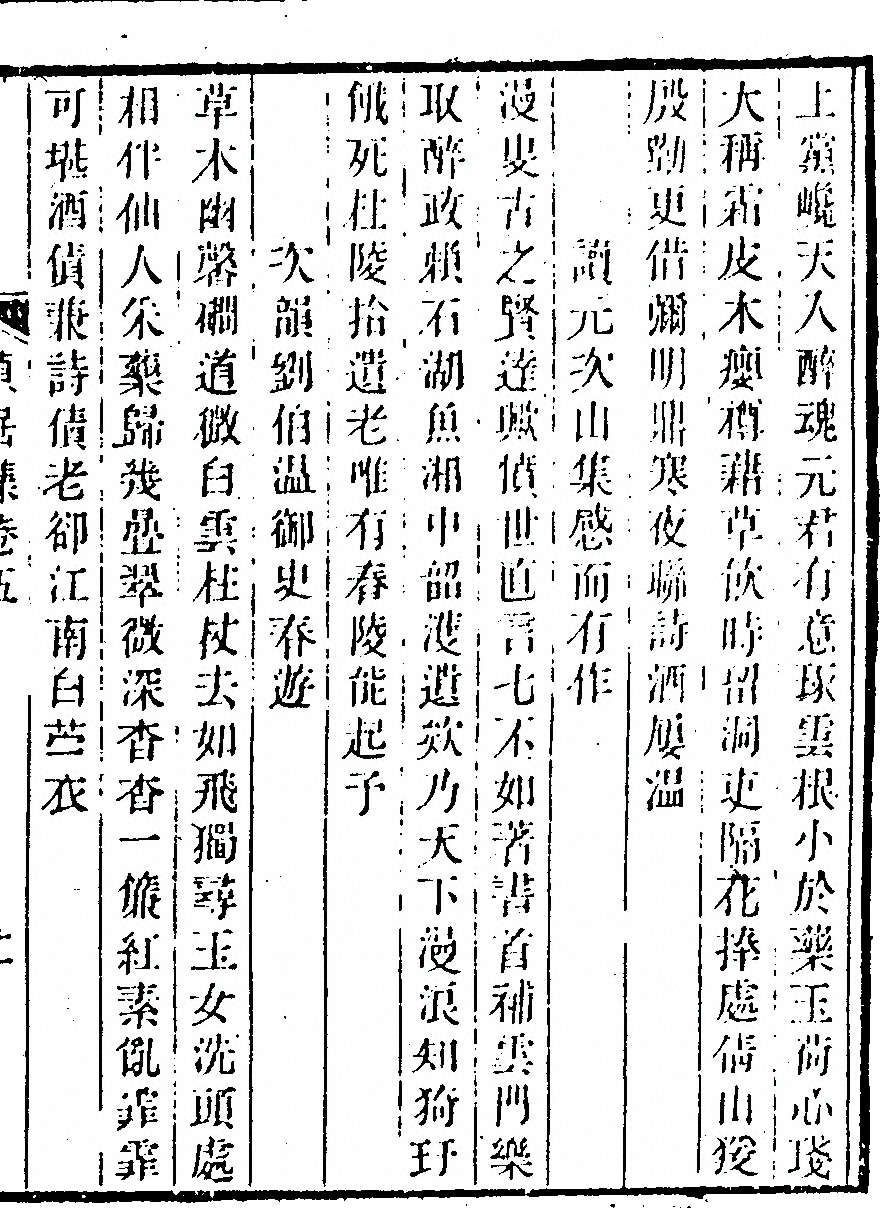 上黨巉天人醉魂元君有意琢雲根小於藥玉荷心琖
大稱霜皮木癭樽藉草飲時留洞吏隔花捧處倩山猨
殷勤更借彌明鼎寒夜聯詩酒屢温
讀元次山集感而有作
漫叟古之賢達歟傎世直言七不如著書首補雲門樂
取醉政賴石湖魚湘中韶濩遺欸乃天下漫浪知猗玗
餓死杜陵拾遺老唯有舂陵能起予
次韻劉伯温御史春遊
草木幽馨磵道微白雲柱杖去如飛獨尋玉女洗頭處
相伴仙人采藥歸幾疊翠微深杳杳一簾紅素亂霏霏
可堪酒債兼詩債老卻江南白苎衣
貞居集卷五